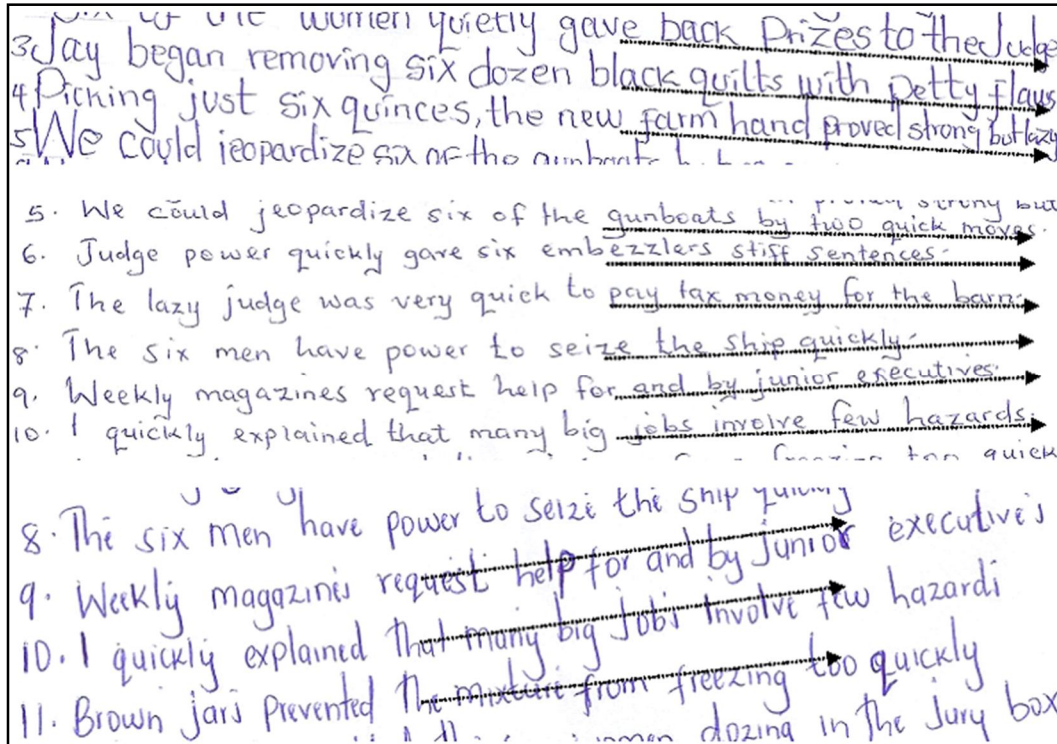 of the women quietly gave back Prizes to the Judge
3 Jay began removing six dozen black quilts with petty flaws
4. Picking just six quinces, the new farm hand proved strong but lazy
5 We could jeopardize six of the gunboats
but
5. We could jeopardize six of the gunboats by two quick moves.
6. Judge power quickly gave six embezzlers stiff sentences.
7. The lazy judge was very quick to pay tax money for the barn.
8. The six men have power to seize the ship quickly.
9. Weekly magazines request help for and by junior executives.
10. I quickly explained that many big jobs involve few hazards.
freezing too quick
8. The six men have power to seize the ship quickly
9. Weekly magazines request help for and by junior executive's
10. I quickly explained That many big jobs involve few hazardi
11. Brown jars prevented The mixture from freezing too quickly
dozing in the Jury box